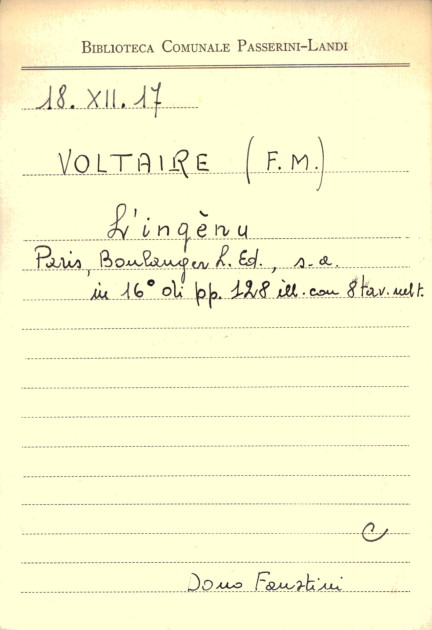 BIBLIOTECA COMUNALE PASSERINI-LANDI
18. XII. 17
VOLTAIRE (F. M.)
L'ingènu
Paris, Boulanger L. Ed., s. a.
in 16° di pp. 128 ill. con 8 tav. nel t.
C
Dono Faustini